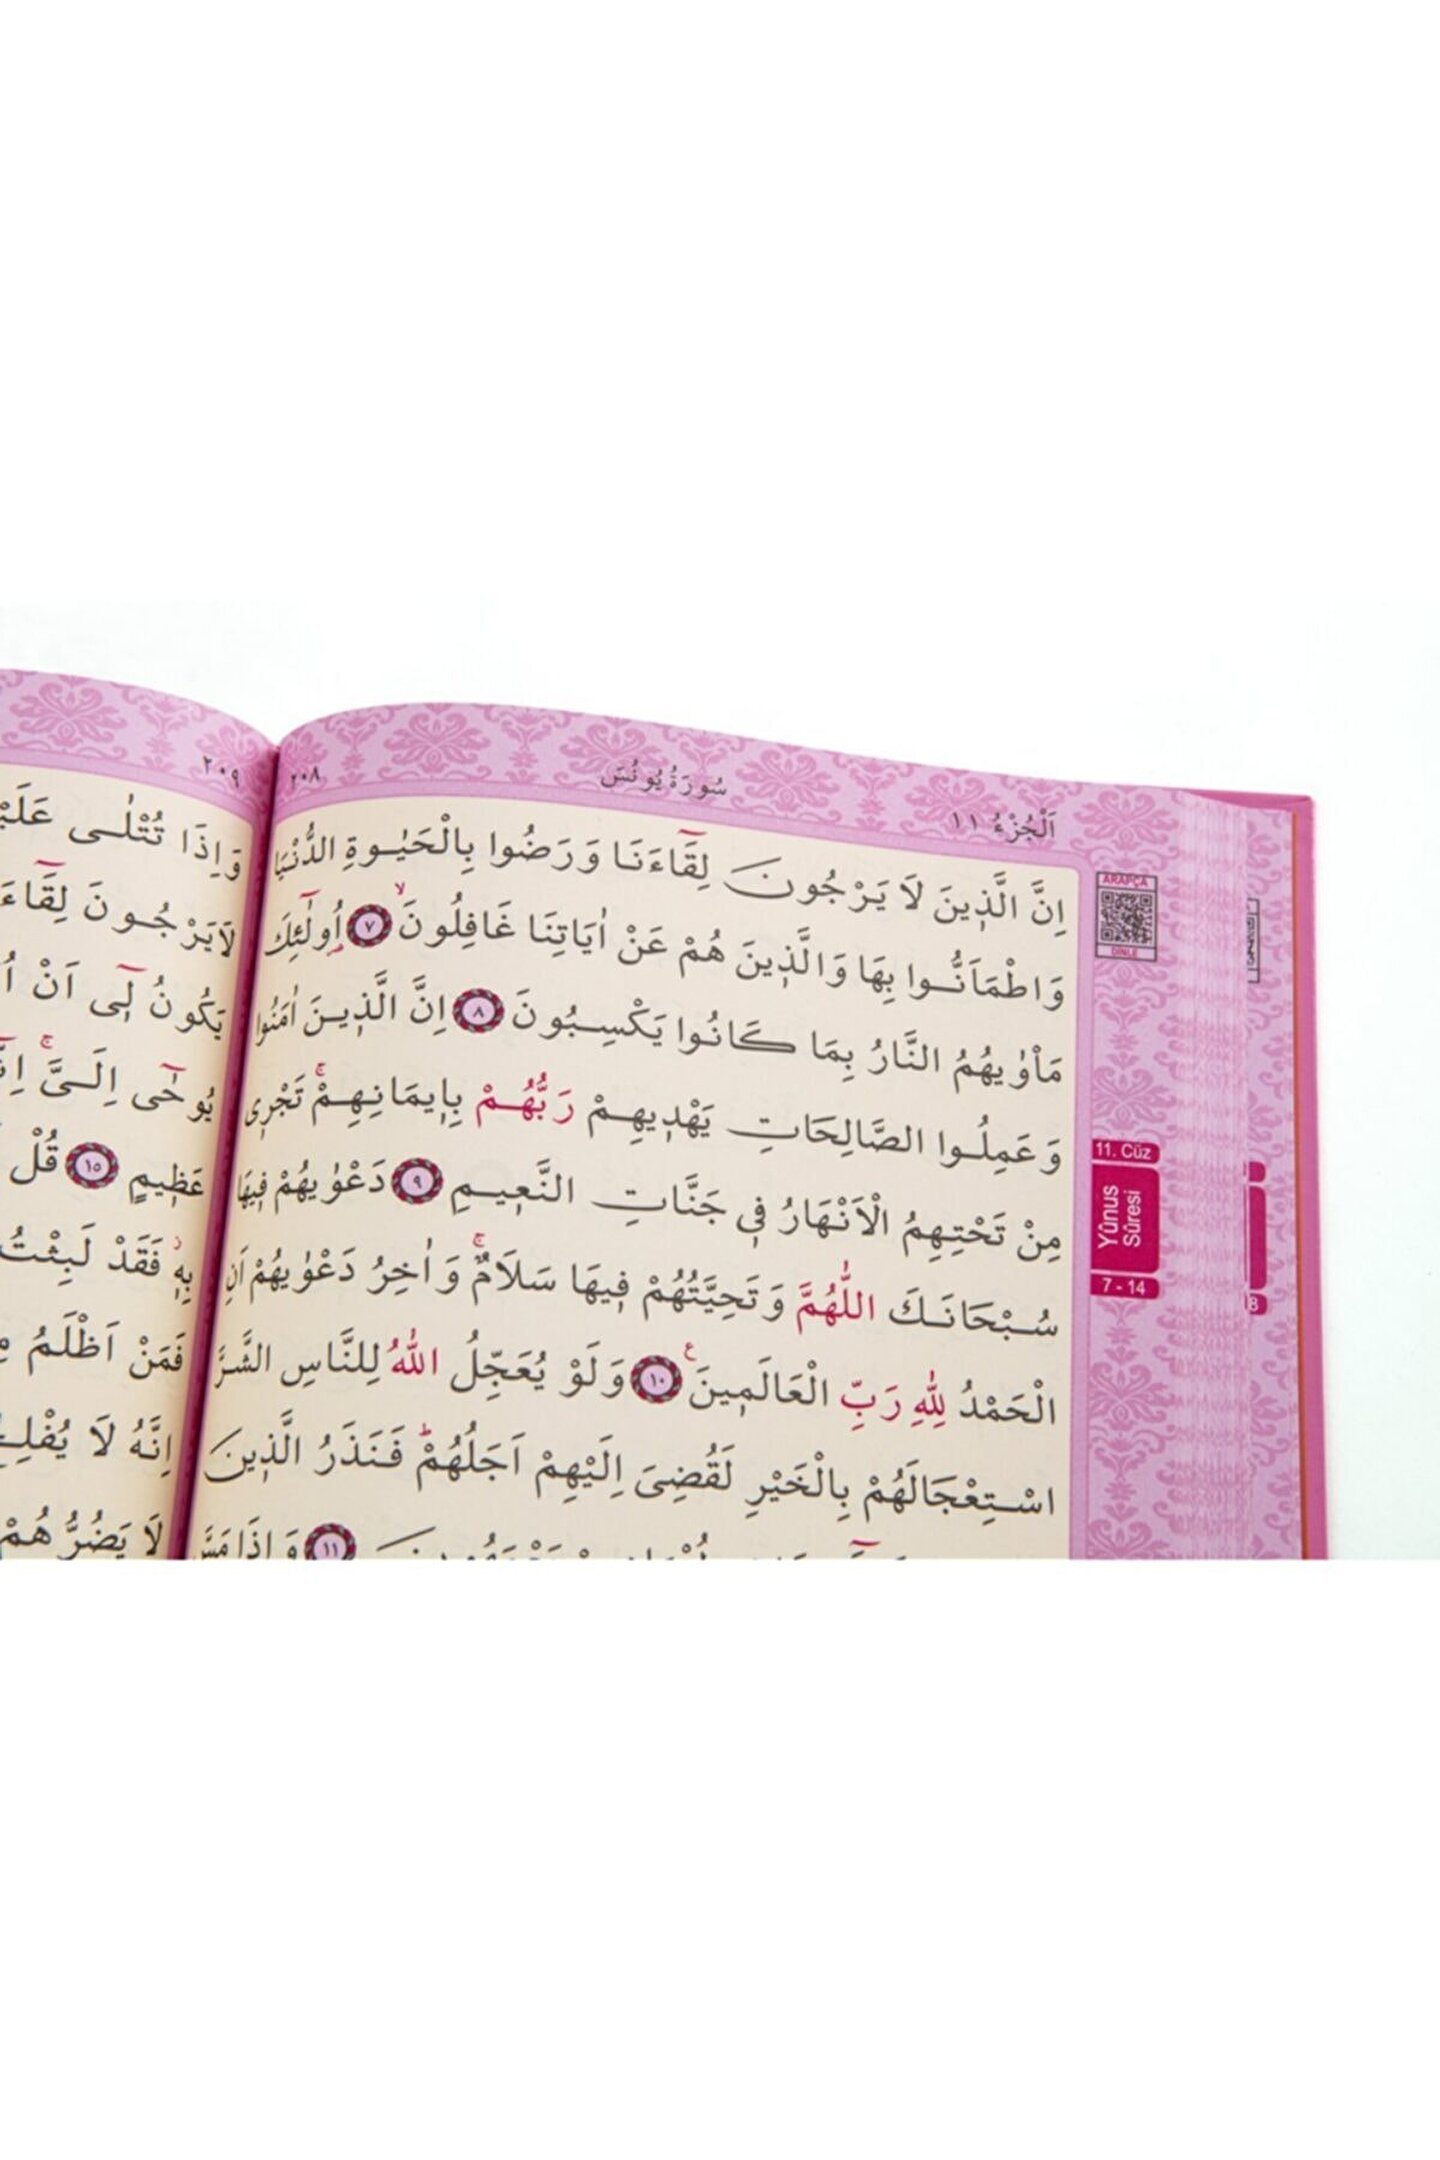 اَلْجُزْءُ ١١
سُورَةُ يُونُسَ
٢٠٨
اِنَّ الَّذ۪ينَ لَا يَرْجُونَ لِقَٓاءَنَا وَرَضُوا بِالْحَيٰوةِ الدُّنْيَا
وَاطْمَاَنُّوا بِهَا وَالَّذ۪ينَ هُمْ عَنْ اٰيَاتِنَا غَافِلُونَۙ ٧ اُو۬لٰٓئِكَ
مَأْوٰيهُمُ النَّارُ بِمَا كَانُوا يَكْسِبُونَ ٨ اِنَّ الَّذ۪ينَ اٰمَنُوا
وَعَمِلُوا الصَّالِحَاتِ يَهْد۪يهِمْ رَبُّهُمْ بِا۪يمَانِهِمْۚ تَجْر۪ي
مِنْ تَحْتِهِمُ الْاَنْهَارُ ف۪ي جَنَّاتِ النَّع۪يمِ ٩ دَعْوٰيهُمْ ف۪يهَا
سُبْحَانَكَ اللّٰهُمَّ وَتَحِيَّتُهُمْ ف۪يهَا سَلَامٌۚ وَاٰخِرُ دَعْوٰيهُمْ اَنِ
الْحَمْدُ لِلّٰهِ رَبِّ الْعَالَم۪ينَ ع ١٠ وَلَوْ يُعَجِّلُ اللّٰهُ لِلنَّاسِ الشَّرَّ
اسْتِعْجَالَهُمْ بِالْخَيْرِ لَقُضِيَ اِلَيْهِمْ اَجَلُهُمْۜ فَنَذَرُ الَّذ۪ينَ
١١ وَاِذَا مَسَّ
ARAPÇA
DİNLE
11. Cüz
Yûnus
Sûresi
7 - 14
٢٠٩
وَاِذَا تُتْلٰى
لَا يَرْجُونَ
يَكُونُ ل۪ٓي اَنْ
يُوحٰٓى اِلَيَّۚ
عَظ۪يمٍ ١٥ قُلْ
بِه۪ۘ فَقَدْ لَبِثْتُ
فَمَنْ اَظْلَمُ
اِنَّهُ لَا
لَا يَضُرُّهُمْ